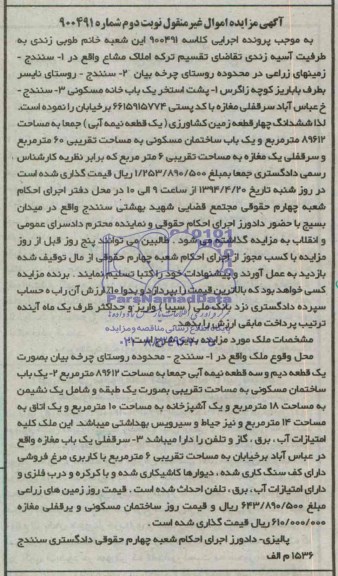 آگهی مزایده اموال غیر منقول نوبت دوم شماره ۹۰۰۴۹۱
به موجب پرونده اجرایی کلاسه ۹۰۰۴۹۱ این شعبه خانم طوبی زندی به
طرفیت آسیه زندی تقاضای تقسیم ترکه املاک مشاع واقع در ۱- سنندج -
زمینهای زراعی در محدوده روستای چرخه بیان ۲- سنندج - روستای نایسر
بطرف باباریز کوچه زاگرس ۱- پشت استخر یک باب خانه مسکونی ۳- سنندج -
خ عباس آباد سرقفلی مغازه با کد پستی ۶۶۱۵۹۱۵۷۷۴ برخیابان را نموده است.
لذا ششدانگ چهار قطعه زمین کشاورزی (یک قطعه نیمه آبی) جمعا به مساحت
۸۹۶۱۲ مترمربع و یک باب ساختمان مسکونی به مساحت تقریبی ۶۰ مترمربع
و سرقفلی یک مغازه به مساحت تقریبی ۶ متر مربع که برابر نظریه کارشناس
رسمی دادگستری جمعا بمبلغ ۱/۲۵۳/۸۹۰/۵۰۰ ریال قیمت گذاری شده است
در روز شنبه تاریخ ۱۳۹۴/۴/۲۰ از ساعت ۹ الی ۱۰ در محل دفتر اجرای احکام
شعبه چهارم حقوقی مجتمع قضایی شهید بهشتی سنندج واقع در میدان
بسیج با حضور دادورز اجرای احکام حقوقی و نماینده محترم دادسرای عمومی
و انقلاب به مزایده گذاشته می شود. طالبین می توانند پنج روز قبل از روز
مزایده با کسب مجوز از اجرای احکام شعبه چهارم حقوقی از مال توقیف شده
بازدید به عمل آورند و پیشنهادات خود را کتبا تسلیم نمایند. برنده مزایده
کسی خواهد بود که بالاترین قیمت را بپردازد و بدوا ۱۰٪ ارزش آن را به حساب
سپرده دادگستری نزد بانک ملی (سیبا) واریز و حداکثر ظرف یک ماه آینده
ترتیب پرداخت مابقی ارزش را بدهد.
مشخصات ملک مورد مزایده بدین شرح است:
محل وقوع ملک واقع در ۱- سنندج - محدوده روستای چرخه بیان بصورت
یک قطعه دیم و سه قطعه نیمه آبی جمعا به مساحت ۸۹۶۱۲ مترمربع ۲- یک باب
ساختمان مسکونی به مساحت تقریبی بصورت یک طبقه و شامل یک نشیمن
به مساحت ۱۸ مترمربع و یک آشپزخانه به مساحت ۱۰ مترمربع و یک اتاق به
مساحت ۱۴ مترمربع و نیز حیاط و سیرویس بهداشتی میباشد. این ملک کلیه
امتیازات آب، برق، گاز و تلفن را دارا میباشد ۳- سرقفلی یک باب مغازه واقع
در عباس آباد برخیابان به مساحت تقریبی ۶ مترمربع با کاربری مرغ فروشی
دارای کف سنگ کاری شده، دیوارها کاشیکاری شده و با کرکره و درب فلزی و
دارای امتیازات آب، برق، تلفن احداث شده است. قیمت روز زمین های زراعی
مبلغ ۶۴۳/۸۹۰/۵۰۰ ریال و قیمت روز ساختمان مسکونی و یرقفلی مغازه
۶۱۰/۰۰۰/۰۰۰ ریال قیمت گذاری شده است.
پالیزی- دادورز اجرای احکام شعبه چهارم حقوقی دادگستری سنندج
۱۵۳۶ م الف
ParsNamadData